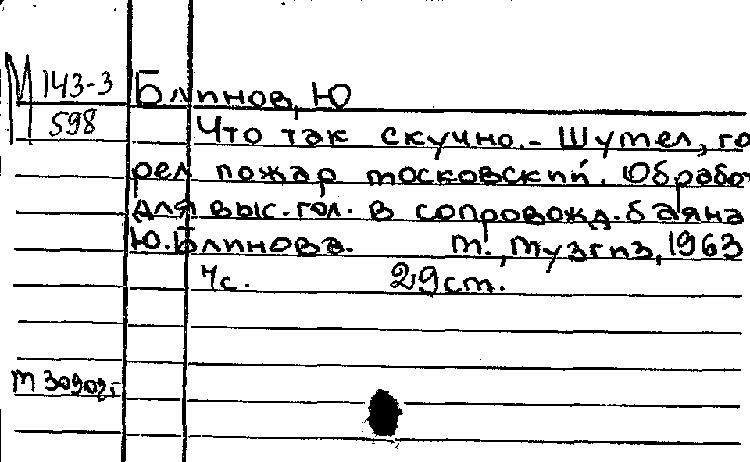 М 143-3 Блинов, Ю
598 Что так скучно. - Шумел, го
рел пожар московский. Обрабо
для выс. гол. в сопровожд. баяна
Ю. Блинова. М., Музгиз, 1963
4с. 29см.
М 30902г